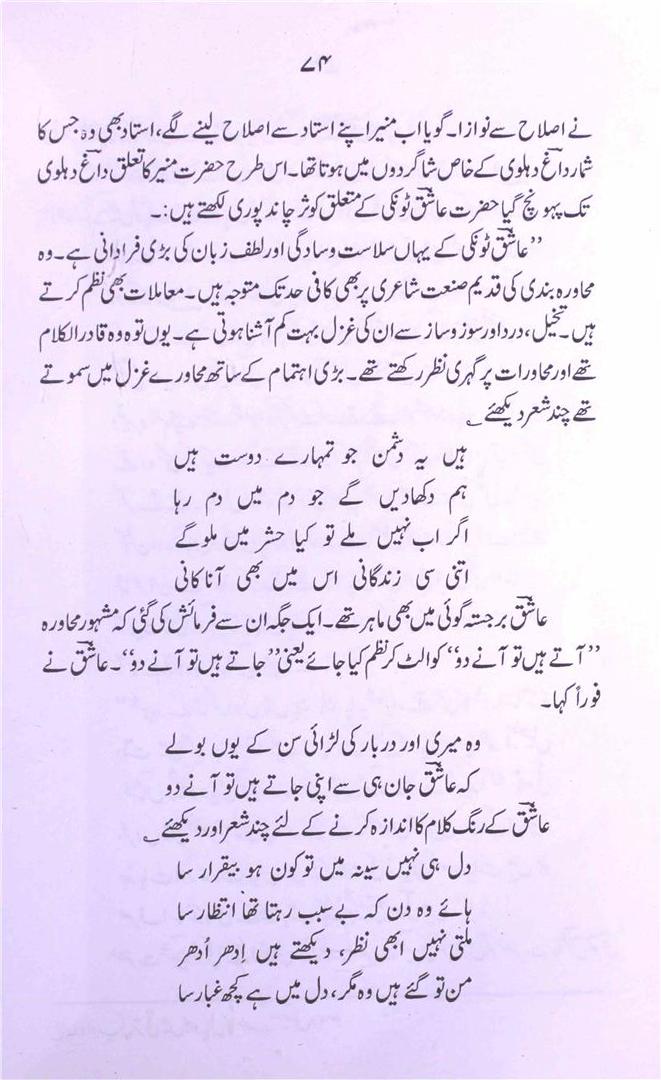 ۷۴
نے اصلاح سے نوازا۔ گویا اب منیر اپنے استاد سے اصلاح لینے لگے، استاد بھی وہ جس کا
شمار داغؔ دہلوی کے خاص شاگردوں میں ہوتا تھا۔ اس طرح حضرت منیر کا تعلق داغؔ دہلوی
تک پہونچ گیا حضرت عاشقؔ ٹونکی کے متعلق کوثر چاند پوری لکھتے ہیں:۔
”عاشقؔ ٹونکی کے یہاں سلاست و سادگی اور لطف زبان کی بڑی فرادانی ہے۔ وہ
محاورہ بندی کی قدیم صنعت شاعری پر بھی کافی حد تک متوجہ ہیں۔ معاملات بھی نظم کرتے
ہیں۔ تخیل، درد اور سوز و ساز سے ان کی غزل بہت کم آشنا ہوتی ہے۔ یوں تو وہ قادر الکلام
تھے اور محاورات پر گہری نظر رکھتے تھے۔ بڑی اہتمام کے ساتھ محاورے غزل میں سموتے
تھے چند شعر دیکھئے ؂
ہیں یہ دشمن جو تمہارے دوست ہیں
ہم دکھادیں گے جو دم میں دم رہا
اگر اب نہیں ملے تو کیا حشر میں ملوگے
اتنی سی زندگانی اس میں بھی آناکانی
عاشقؔ برجستہ گوئی میں بھی ماہر تھے۔ ایک جگہ ان سے فرمائش کی گئی کہ مشہور محاورہ
”آتے ہیں تو آنے دو“ کو الٹ کر نظم کیا جائے یعنی ”جاتے ہیں تو آنے دو“۔ عاشقؔ نے
فوراً کہا۔
وہ میری اور دربار کی لڑائی سن کے یوں بولے
کہ عاشقؔ جان ہی سے اپنی جاتے ہیں تو آنے دو
عاشقؔ کے رنگ کلام کا اندازہ کرنے کے لئے چند شعر اور دیکھئے ؂
دل ہی نہیں سینہ میں تو کون ہو بیقرار سا
ہائے وہ دن کہ بے سبب رہتا تھا انتظار سا
ملتی نہیں ابھی نظر، دیکھتے ہیں اِدھر اُدھر
من تو گئے ہیں وہ مگر، دل میں ہے کچھ غبار سا